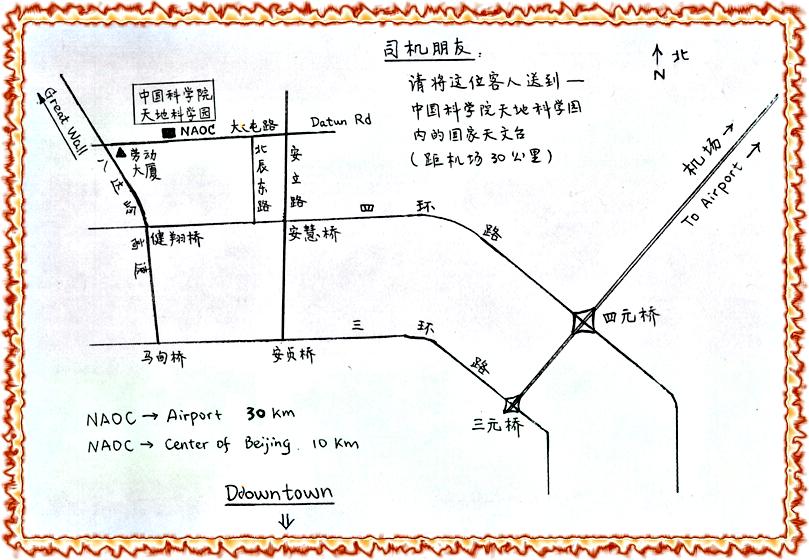 司机朋友:
请将这位客人送到一
中国科学院天地科学园
内的国家天文台
(距机场30公里)
北
N
Great Wall
中国科学院
天地科学园
NAOC
大屯路
Datun Rd
劳动
大厦
八达岭
高速
北辰东路
安立路
四环路
健翔桥
安慧桥
机场→
To Airport →
四元桥
三环路
马甸桥
安贞桥
三元桥
NAOC → Airport 30 Km
NAOC → Center of Beijing. 10 Km
Ddowntown